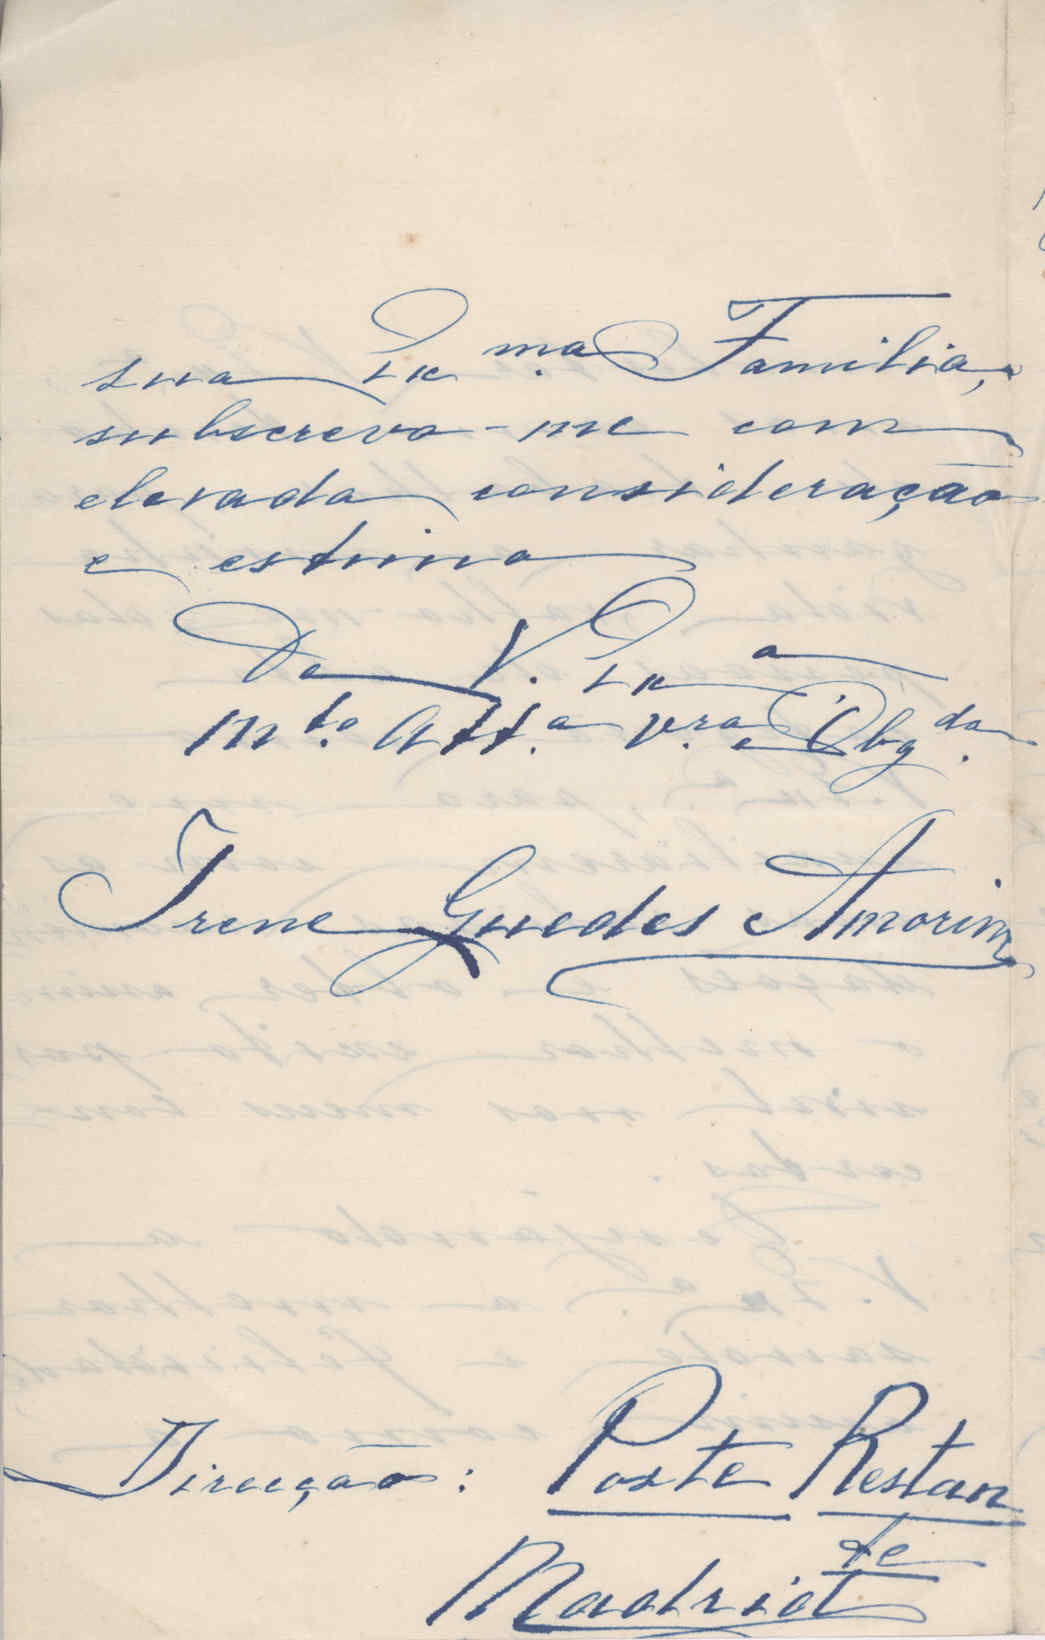 sua Ex.ma Familia,
subscrevo-me com
elevada consideração
e estima
De V. Exa
Mto. Atta. Vra. e Obgda.
Irene Guedes Amorim
Direcção: Poste Restan
te
Madrid